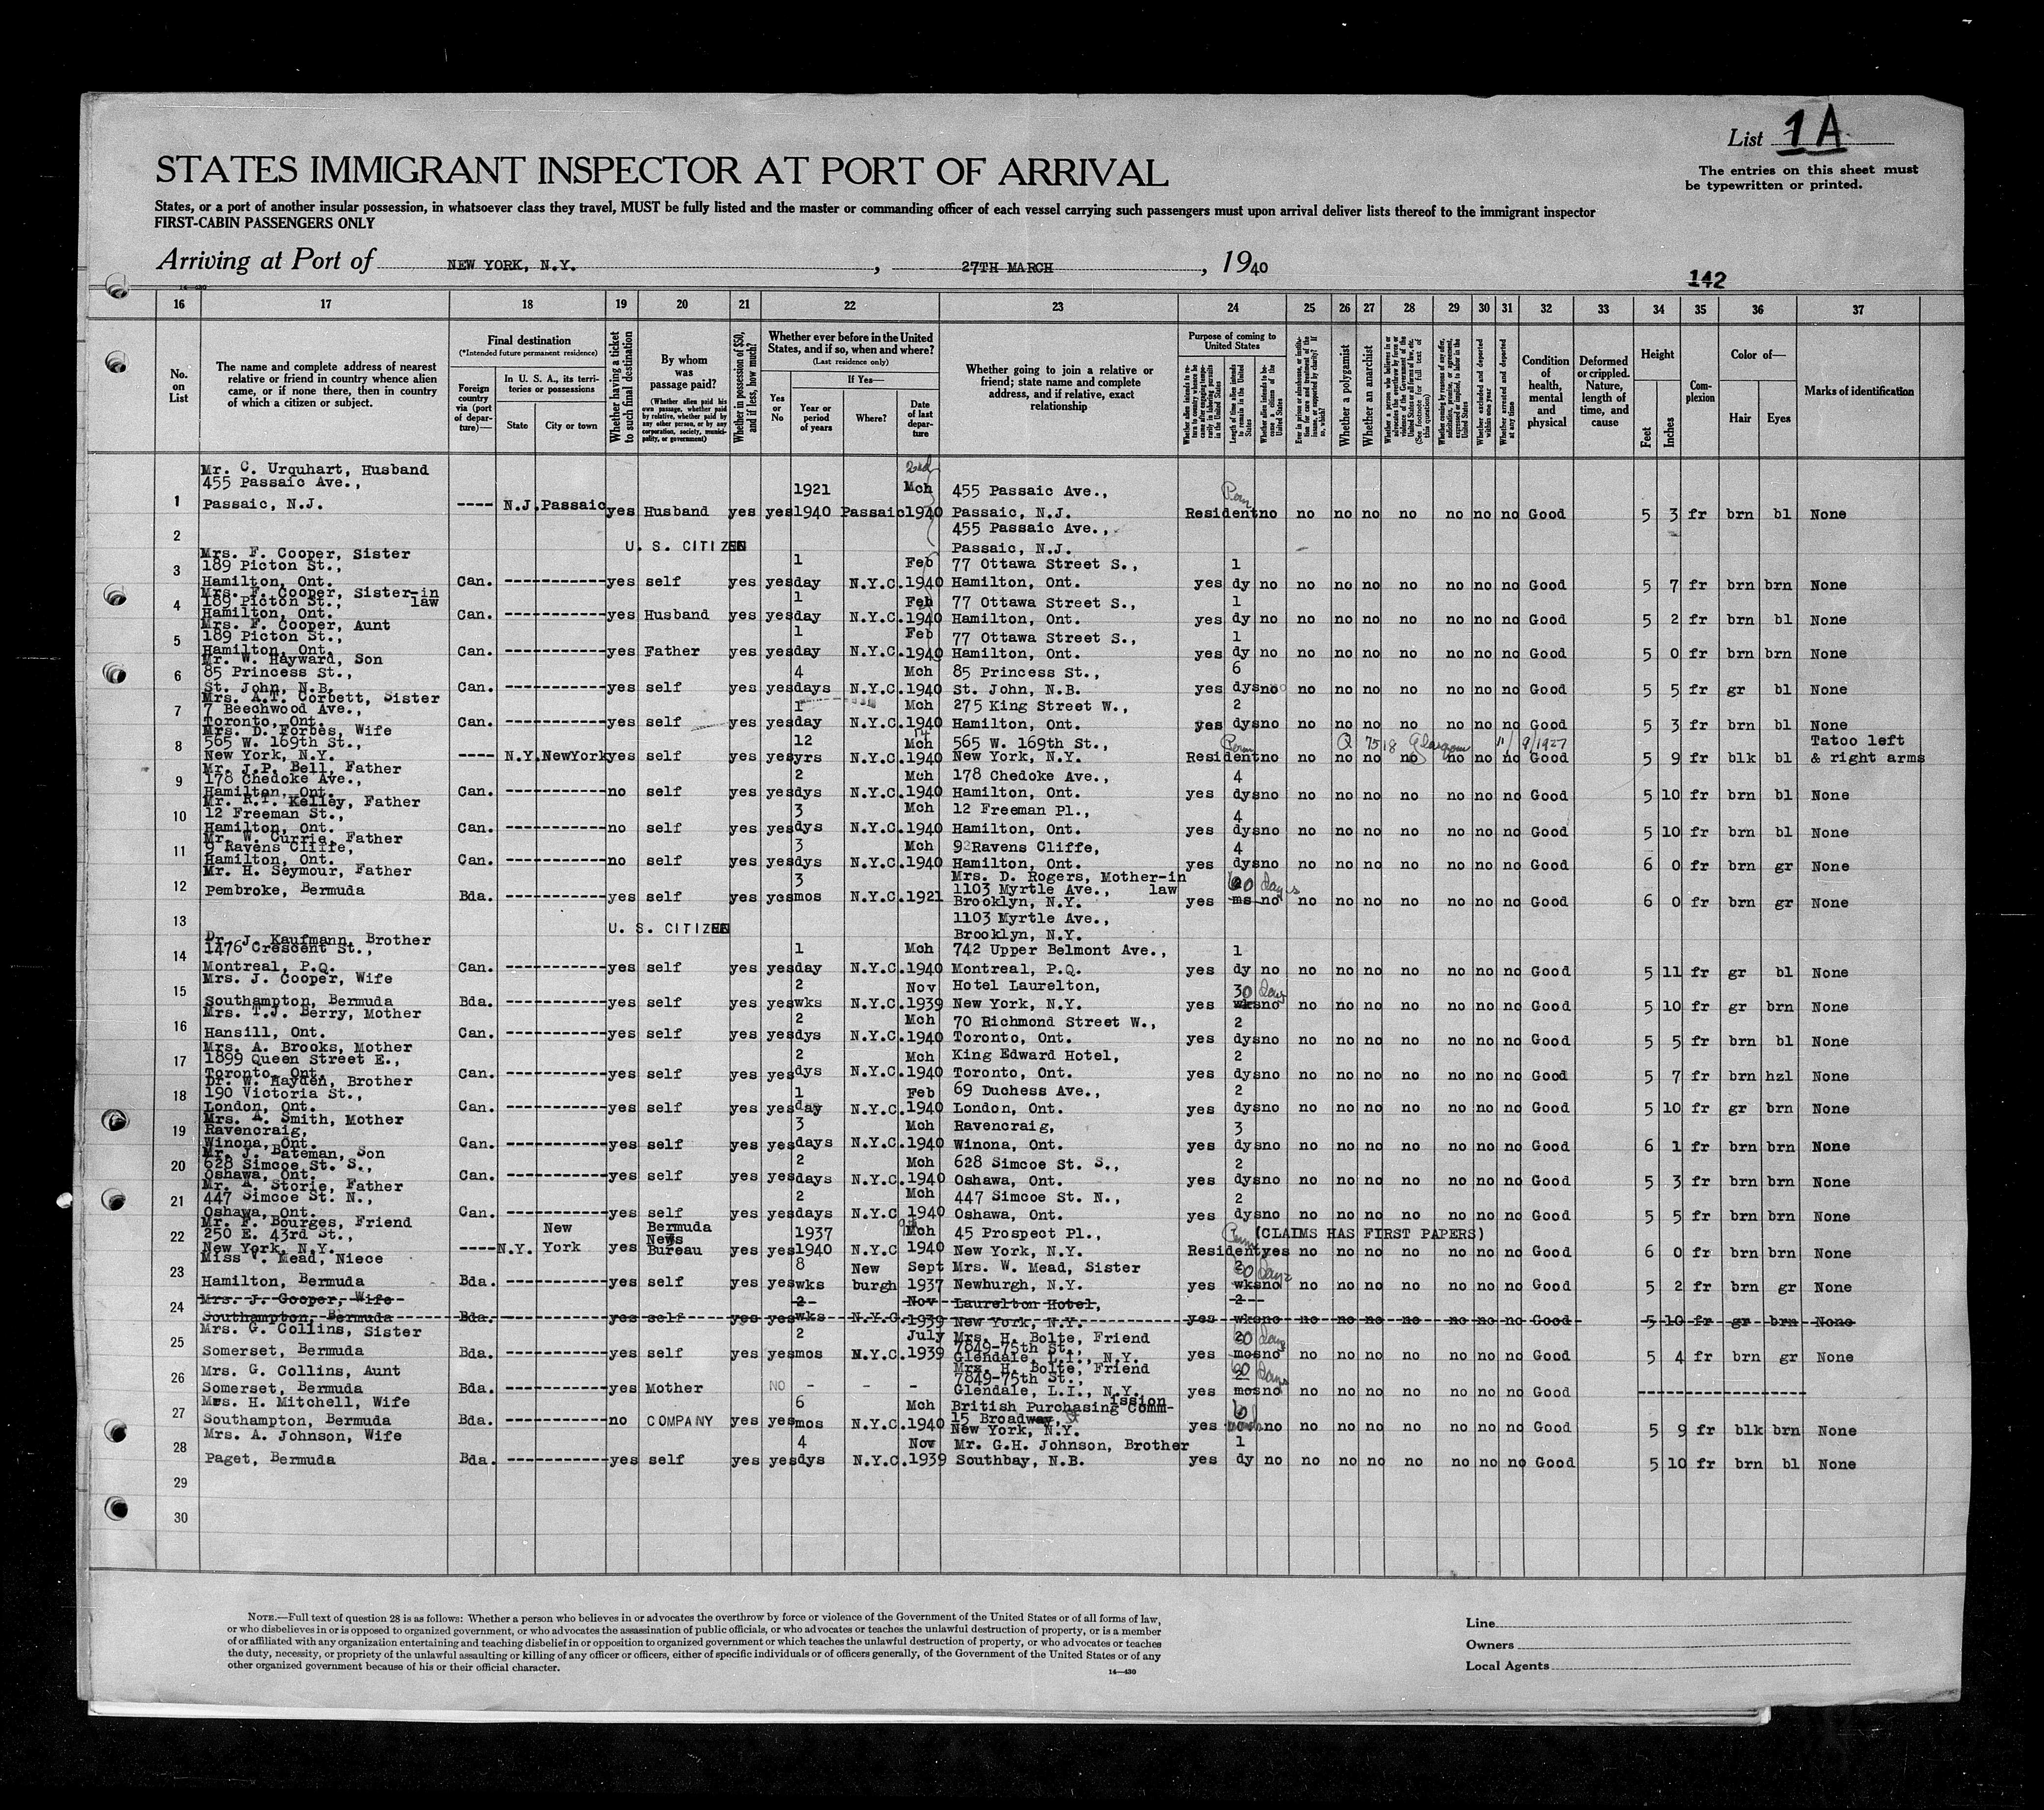 List 1A
The entries on this sheet must
be typewritten or printed.
STATES IMMIGRANT INSPECTOR AT PORT OF ARRIVAL
States, or a port of another insular possession, in whatsoever class they travel, MUST be fully listed and the master or commanding officer of each vessel carrying such passengers must upon arrival deliver lists thereof to the immigrant inspector
FIRST-CABIN PASSENGERS ONLY
Arriving at Port of NEW YORK, N.Y. , 27TH MARCH , 1940
142
14—430
16 17 18 19 20 21 22 23 24 25 26 27 28 29 30 31 32 33 34 35 36 37
No. on List
The name and complete address of nearest relative or friend in country whence alien came, or if none there, then in country of which a citizen or subject.
Final destination
(*Intended future permanent residence)
Foreign country via (port of departure)—
In U. S. A., its territories or possessions
State
City or town
Whether having a ticket to such final destination
By whom was passage paid?
(Whether alien paid his own passage, whether paid by relative, whether paid by any other person, or by any corporation, society, municipality, or government)
Whether in possession of $50, and if less, how much?
Whether ever before in the United States, and if so, when and where?
(Last residence only)
Yes or No
If Yes—
Year or period of years
Where?
Date of last departure
Whether going to join a relative or friend; state name and complete address, and if relative, exact relationship
Purpose of coming to United States
Length of time alien intends to remain in the United States
Whether alien intends to become a citizen of the United States
Whether a polygamist
Whether an anarchist
Whether excluded and deported within one year
Whether arrested and deported at any time
Condition of health, mental and physical
Deformed or crippled. Nature, length of time, and cause
Height
Feet
Inches
Complexion
Color of—
Hair
Eyes
Marks of identification
1 Mr. C. Urquhart, Husband
455 Passaic Ave.,
Passaic, N.J. ---- N.J. Passaic yes Husband yes yes 1921 1940 Passaic 2nd Mch 1940 455 Passaic Ave., Passaic, N.J. Perm Resident no no no no no no no no Good 5 3 fr brn bl None
2 U. S. CITIZEN 455 Passaic Ave., Passaic, N.J.
3 Mrs. F. Cooper, Sister
189 Picton St.,
Hamilton, Ont. Can. ----------- yes self yes yes 1 day N.Y.C. Feb 1940 77 Ottawa Street S., Hamilton, Ont. yes 1 dy no no no no no no no no Good 5 7 fr brn brn None
4 Mrs. F. Cooper, Sister-in law
189 Picton St.,
Hamilton, Ont. Can. ----------- yes Husband yes yes 1 day N.Y.C. Feb 1940 77 Ottawa Street S., Hamilton, Ont. yes 1 dy no no no no no no no no Good 5 2 fr brn bl None
5 Mrs. F. Cooper, Aunt
189 Picton St.,
Hamilton, Ont. Can. ----------- yes Father yes yes 1 day N.Y.C. Feb 1940 77 Ottawa Street S., Hamilton, Ont. yes 1 dy no no no no no no no no Good 5 0 fr brn brn None
6 Mr. W. Hayward, Son
85 Princess St.,
St. John, N.B. Can. ----------- yes self yes yes 4 days N.Y.C. Mch 1940 85 Princess St., St. John, N.B. yes 6 dys no no no no no no no no Good 5 5 fr gr bl None
7 Mrs. A.T. Corbett, Sister
7 Beechwood Ave.,
Toronto, Ont. Can. ----------- yes self yes yes 1 day N.Y.C. Mch 1940 275 King Street W., Hamilton, Ont. yes 2 dys no no no no no no no no Good 5 3 fr brn bl None
8 Mrs. D. Forbes, Wife
565 W. 169th St.,
New York, N.Y. ---- N.Y. NewYork yes self yes yes 12 yrs N.Y.C. 14 Mch 1940 565 W. 169th St., New York, N.Y. Perm Resident no Q 7518 Glasgow 11/9/1927 no no no no no no no Good 5 9 fr blk bl Tatoo left & right arms
9 Mr. J.P. Bell, Father
178 Chedoke Ave.,
Hamilton, Ont. Can. ----------- no self yes yes 2 dys N.Y.C. Mch 1940 178 Chedoke Ave., Hamilton, Ont. yes 4 dys no no no no no no no no Good 5 10 fr brn bl None
10 Mr. R.T. Kelley, Father
12 Freeman St.,
Hamilton, Ont. Can. ----------- no self yes yes 3 dys N.Y.C. Mch 1940 12 Freeman Pl., Hamilton, Ont. yes 4 dys no no no no no no no no Good 5 10 fr brn bl None
11 Mr. W. Currie, Father
9 Ravens Cliffe,
Hamilton, Ont. Can. ----------- no self yes yes 3 dys N.Y.C. Mch 1940 9 Ravens Cliffe, Hamilton, Ont. yes 4 dys no no no no no no no no Good 6 0 fr brn gr None
12 Mr. H. Seymour, Father
Pembroke, Bermuda Bda. ----------- yes self yes yes 3 mos N.Y.C. 1921 Mrs. D. Rogers, Mother-in law 1103 Myrtle Ave., Brooklyn, N.Y. yes 60 days ms no no no no no no no no Good 6 0 fr brn gr None
13 U. S. CITIZEN 1103 Myrtle Ave., Brooklyn, N.Y.
14 Dr. J. Kaufmann, Brother
1476 Crescent St.,
Montreal, P.Q. Can. ----------- yes self yes yes 1 day N.Y.C. Mch 1940 742 Upper Belmont Ave., Montreal, P.Q. yes 1 dy no no no no no no no no Good 5 11 fr gr bl None
15 Mrs. J. Cooper, Wife
Southampton, Bermuda Bda. ----------- yes self yes yes 2 wks N.Y.C. Nov 1939 Hotel Laurelton, New York, N.Y. yes 30 days wks no no no no no no no no Good 5 10 fr gr brn None
16 Mrs. T.J. Berry, Mother
Hansill, Ont. Can. ----------- yes self yes yes 2 dys N.Y.C. Mch 1940 70 Richmond Street W., Toronto, Ont. yes 2 dys no no no no no no no no Good 5 5 fr brn bl None
17 Mrs. A. Brooks, Mother
1899 Queen Street E.,
Toronto, Ont. Can. ----------- yes self yes yes 2 dys N.Y.C. Mch 1940 King Edward Hotel, Toronto, Ont. yes 2 dys no no no no no no no no Good 5 7 fr brn hzl None
18 Dr. W. Hayden, Brother
190 Victoria St.,
London, Ont. Can. ----------- yes self yes yes 1 day N.Y.C. Feb 1940 69 Duchess Ave., London, Ont. yes 2 dys no no no no no no no no Good 5 10 fr gr brn None
19 Mrs. A. Smith, Mother
Ravencraig,
Winona, Ont. Can. ----------- yes self yes yes 3 days N.Y.C. Mch 1940 Ravencraig, Winona, Ont. yes 3 dys no no no no no no no no Good 6 1 fr brn brn None
20 Mr. J. Bateman, Son
628 Simcoe St. S.,
Oshawa, Ont. Can. ----------- yes self yes yes 2 days N.Y.C. Mch 1940 628 Simcoe St. S., Oshawa, Ont. yes 2 dys no no no no no no no no Good 5 3 fr brn brn None
21 Mr. A. Storie, Father
447 Simcoe St. N.,
Oshawa, Ont. Can. ----------- yes self yes yes 2 days N.Y.C Mch 1940 447 Simcoe St. N., Oshawa, Ont. yes 2 dys no no no no no no no no Good 5 5 fr brn brn None
22 Mr. F. Bourges, Friend
250 E. 43rd St.,
New York, N.Y. ---- N.Y. New York yes Bermuda News Bureau yes yes 1937 1940 N.Y.C 9th Mch 1940 45 Prospect Pl., New York, N.Y. Perm Resident yes (CLAIMS HAS FIRST PAPERS) no no no no no no no Good 6 0 fr brn brn None
23 Miss V. Mead, Niece
Hamilton, Bermuda Bda. ----------- yes self yes yes 8 wks New burgh Sept 1937 Mrs. W. Mead, Sister Newburgh, N.Y. yes 60 days wks no no no no no no no no Good 5 2 fr brn gr None
24 Mrs. J. Cooper, Wife
Southampton, Bermuda Bda. ----------- yes self yes yes 2 wks N.Y.C. Nov 1939 Laurelton Hotel, New York, N.Y. yes 2 wks no no no no no no no no Good 5 10 fr gr brn None
25 Mrs. G. Collins, Sister
Somerset, Bermuda Bda. ----------- yes self yes yes 2 mos N.Y.C. July 1939 Mrs. H. Bolte, Friend 7849-75th St., Glendale, L.I., N.Y. yes 60 days mos no no no no no no no no Good 5 4 fr brn gr None
26 Mrs. G. Collins, Aunt
Somerset, Bermuda Bda. ----------- yes Mother NO - - - Mrs. H. Bolte, Friend 7849-75th St., Glendale, L.I., N.Y. yes 60 days mos no no no no no no no no Good ------------------
27 Mrs. H. Mitchell, Wife
Southampton, Bermuda Bda. ----------- no COMPANY yes yes 6 mos N.Y.C. Mch 1940 British Purchasing Commission 15 Broadway, St New York, N.Y. yes 6 no no no no no no no no Good 5 9 fr blk brn None
28 Mrs. A. Johnson, Wife
Paget, Bermuda Bda. ----------- yes self yes yes 4 dys N.Y.C. Nov 1939 Mr. G.H. Johnson, Brother Southbay, N.B. yes 1 dy no no no no no no no no Good 5 10 fr brn bl None
29
30
NOTE.—Full text of question 28 is as follows: Whether a person who believes in or advocates the overthrow by force or violence of the Government of the United States or of all forms of law,
or who disbelieves in or is opposed to organized government, or who advocates the assassination of public officials, or who advocates or teaches the unlawful destruction of property, or is a member
of or affiliated with any organization entertaining and teaching disbelief in or opposition to organized government or which teaches the unlawful destruction of property, or who advocates or teaches
the duty, necessity, or propriety of the unlawful assaulting or killing of any officer or officers, either of specific individuals or of officers generally, of the Government of the United States or of any
other organized government because of his or their official character.
14—430
Line
Owners
Local Agents